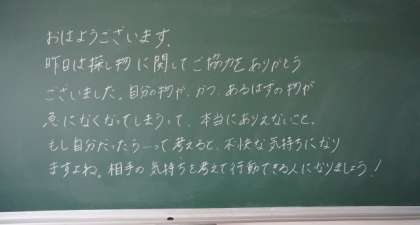 おはようございます。
昨日は探し物に関してご協力をありがとう
ございました。自分の物が、かつ、あるはずの物が
急になくなってしまうって、本当にありえないこと。
もし自分だったら…って考えると、不快な気持ちになり
ますよね。相手の気持ちを考えて行動できる人になりましょう!